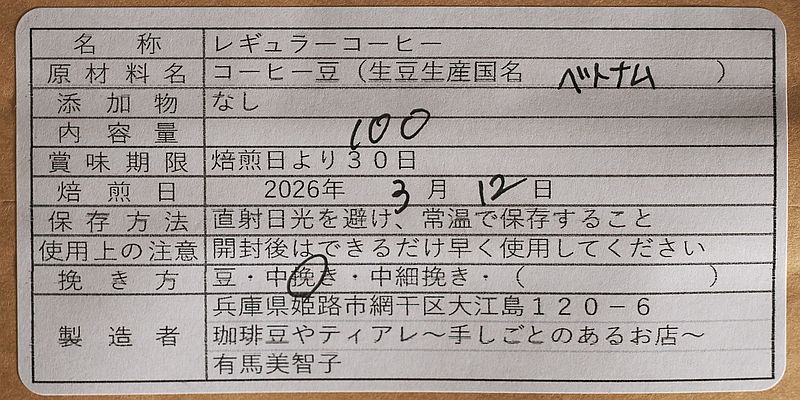 名称 レギュラーコーヒー
原材料名 コーヒー豆（生豆生産国名 ベトナム ）
添加物 なし
内容量 100
賞味期限 焙煎日より３０日
焙煎日 2026年 3月 12日
保存方法 直射日光を避け、常温で保存すること
使用上の注意 開封後はできるだけ早く使用してください
挽き方 豆・中挽き・中細挽き・（ ）
兵庫県姫路市網干区大江島１２０－６
製造者 珈琲豆やティアレ～手しごとのあるお店～
有馬美智子